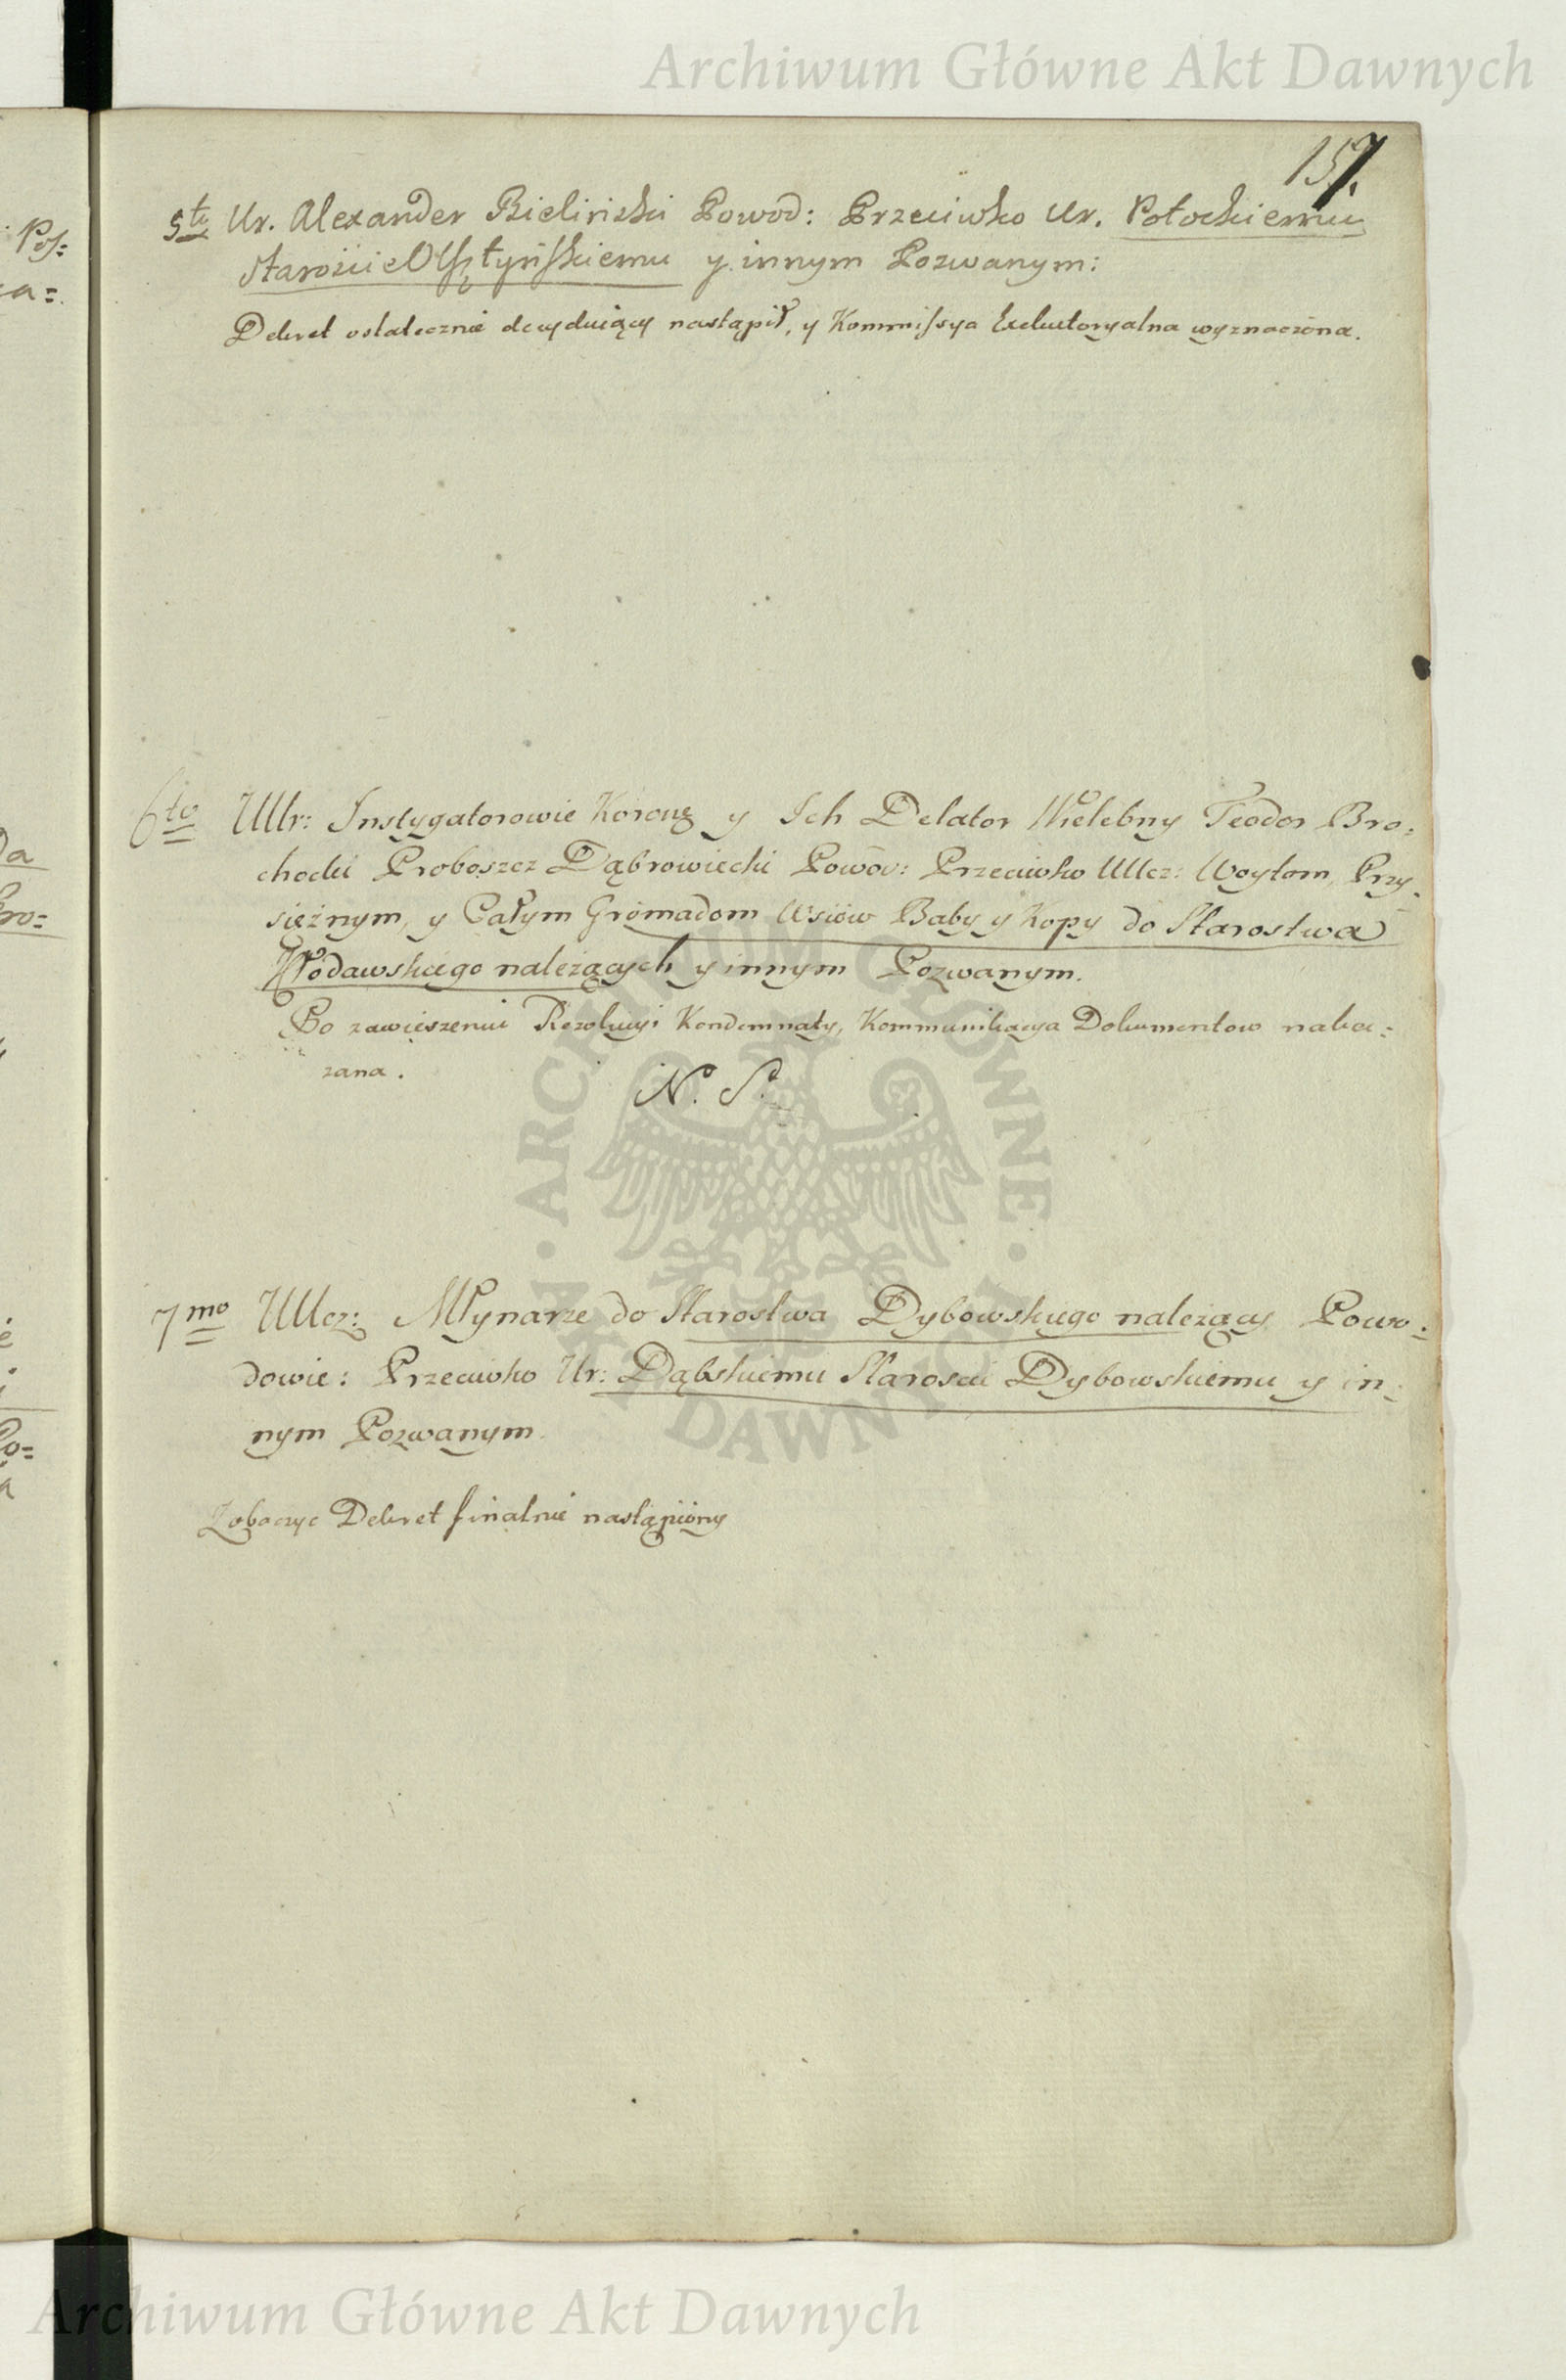 Archiwum Główne Akt Dawnych
157.
5ty Ur. Alexander Bieliński Powod: Przeciwko Ur. Potockiemu
Staroście Olsztyńskiemu y innym Pozwanym:
Dekret ostatecznie decyduiący nastąpił, y Kommissya Exekutoryalna wyznaczona.
6to UUr: Instygatorowie Koronę y Ich Delator Wielebny Teodor Bro:
chocki Proboszcz Dąbrowiecki Powod: Przeciwko UUcz: Woytom, Przy:
siężnym, y Całym Gromadom Wsiów Baby y Kopy do Starostwa
Włodawskiego należących y innym Pozwanym.
Po zawieszeniu Rezolucyi Kondemnaty, Kommunikacya Dokumentow naka:
zana.
N. S.
7mo UUcz: Młynarze do Starostwa Dybowskiego należący Powo:
dowie: Przeciwko Ur: Dąbskiemu Staroscie Dybowskiemu y in:
nym Pozwanym.
Zobaczyc Dekret finalnie nastąpiony
ARCHIWUM GŁÓWNE AKT DAWNYCH
Archiwum Główne Akt Dawnych